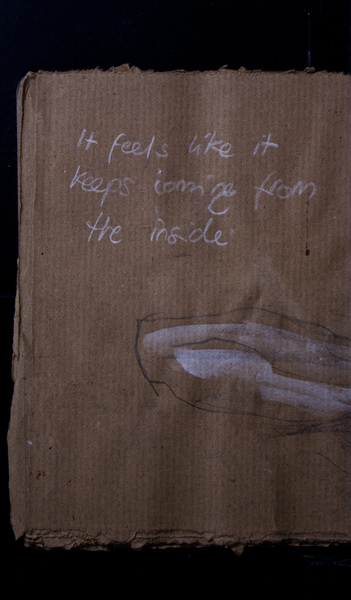 It feels like it
keeps coming from
the inside